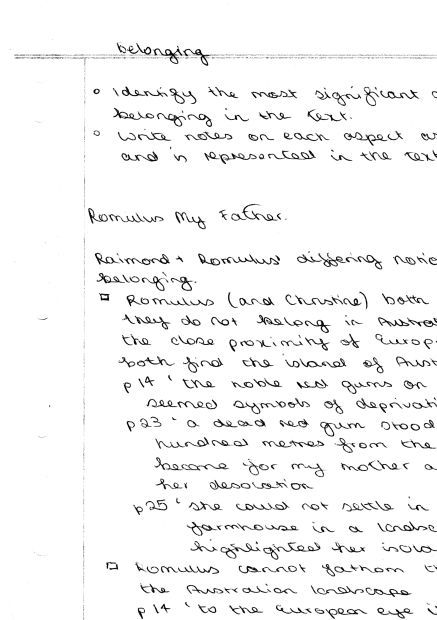 belonging
◦ Identify the most significant
belonging in the text.
◦ Write notes on each aspect
and is represented in the text
Romulus My Father.
Raimond + Romulus' differing
belonging.
□ Romulus (and Christine) both
they do not belong in
the close proximity of
both find the island of
p14 'the noble red gums on
seemed symbols of
p23 'a dead red gum stood
hundred metres from the
become for my mother a
her desolation
p25 'she could not settle in
farmhouse in a
highlighted her
□ Romulus cannot fathom
the Australian landscape
p14 'to the European eye